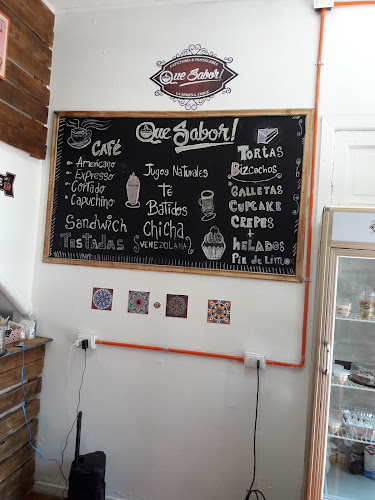 CAFETERIA & PASTELERIA
Que Sabor!
LA SERENA, CHILE
Que Sabor!
CAFÉ
• Americano
• Expresso
• Cortado
• Capuchino
SandwicH
Tostadas
Jugos Naturales
Té
Batidos
CHICHA
(VENEZOLANA)
TORTAS
Bizcochos
GALLETAS
CUPCAKE
CREPES
+
HELADOS
Pie de Limón